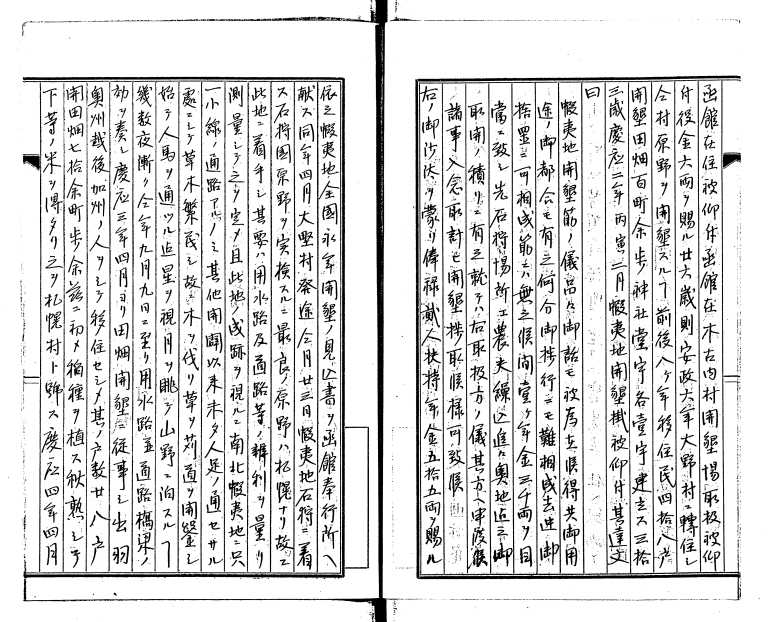 函館在住被仰付函館在木古内村開墾場取扱被仰
付役金六両ヲ賜ル廿六歳則安政六年大野村ニ轉住シ
仝村原野ヲ開墾スルヿ前後八ケ年移住民四拾八戸
開墾田畑百町余歩神社堂宇各壹宇建立ス三拾
三歳慶応二年丙寅二月蝦夷地開墾掛被仰付其達文
曰
蝦夷地開墾筋ノ儀品々御詮モ被為在候得共御用
途御都合モ有之何分御捗行ニモ難相成去迚御
捨置ニ可相成筋ニ無之候間壹ケ年金三千両ヲ目
當ニ致シ先石狩場所エ農夫繰込追々奥地迄ニ御
取開ノ積リニ有之就テハ右取扱方ノ儀其方ヘ申渡候
諸事入念取計ヒ開墾捗取候様可致候
右ノ御沙汰ヲ蒙リ俸禄貳人扶持年金五拾五両ヲ賜ル
依之蝦夷地全國永年開墾ノ見込書ヲ函館奉行所ヘ
献ス同年四月大野村發途仝月廿三日蝦夷地石狩ニ着
ス石狩國原野ヲ実検スルニ最良ノ原野ハ札幌ナリ故ニ
此地ニ着手シ其要ハ用水路及道路等ノ辨利ヲ量リ
測量シテ之ヲ定メ且此地ノ成跡ヲ視ルニ南北蝦夷地ニ只
一小線ノ通路アルノミ其他開闢以来未タ人足ノ通セサル
處ニシテ草木繁茂シ故ニ木ヲ伐リ草ヲ苅道ヲ開鑿シ
始テ人馬ヲ通ツル迄星ヲ視月ヲ眺テ山野ニ泊スルヿ
幾数夜漸ク仝年九月九日ニ至リ用水路並道路橋梁ノ
効ヲ奏シ慶応三年四月ヨリ田畑開墾ニ従事シ出羽
奥州越後加州ノ人ヲシテ移住セシメ其ノ戸数廿八戸
開田畑七拾余町歩余茲ニ初メ稲種ヲ植ス秋熟シテ
下等ノ米ヲ得タリ之ヲ札幌村ト號ス慶応四年四月